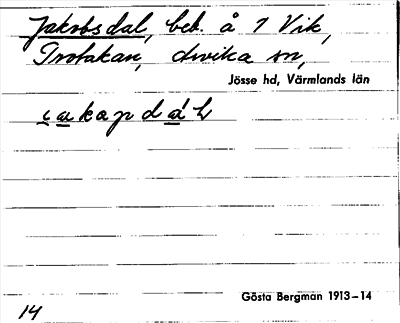 Jakobsdal, beb. å 1 Vik,
Trotakan, Arvika sn,
Jösse hd, Värmlands län
Gösta Bergman 1913-14
14